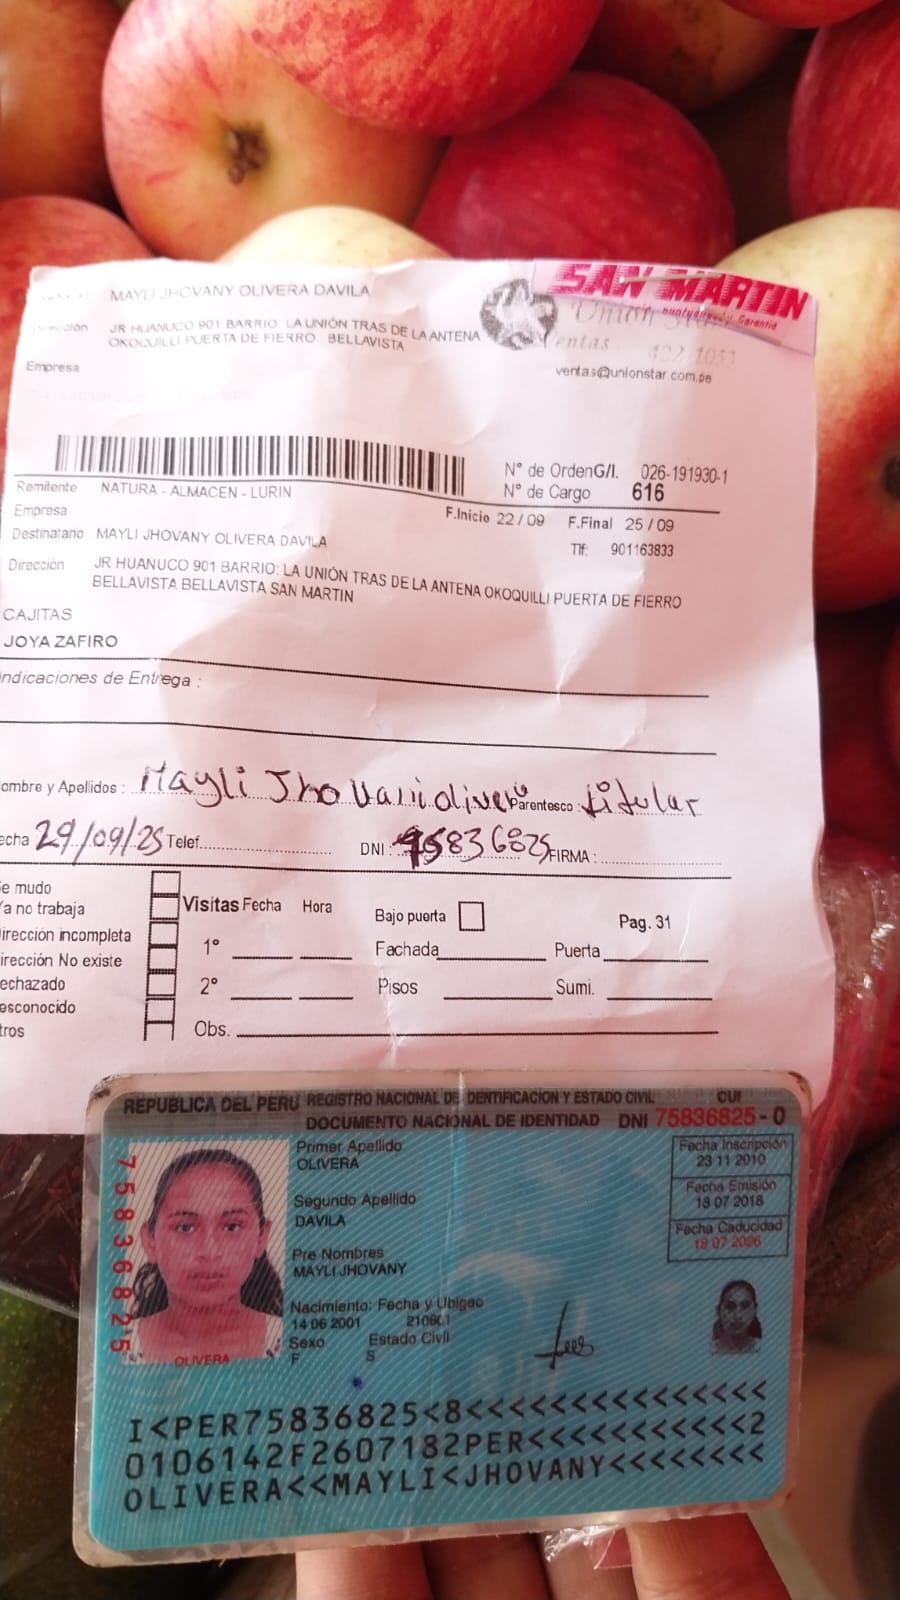 MAYLI JHOVANY OLIVERA DAVILA
Dirección JR HUANUCO 901 BARRIO. LA UNIÓN TRAS DE LA ANTENA
OKOQUILLI PUERTA DE FIERRO BELLAVISTA
Empresa
SAN MARTIN
puntualidad y Garantia
Union Star
Ventas 422 1033
ventas@unionstar.com.pe
N° de OrdenG/I. 026-191930-1
N° de Cargo 616
Remitente NATURA - ALMACEN - LURIN
Empresa
F.Inicio 22 / 09 F.Final 25 / 09
Destinatario MAYLI JHOVANY OLIVERA DAVILA
Tlf: 901163833
Dirección JR HUANUCO 901 BARRIO: LA UNIÓN TRAS DE LA ANTENA OKOQUILLI PUERTA DE FIERRO
BELLAVISTA BELLAVISTA SAN MARTIN
CAJITAS
JOYA ZAFIRO
Indicaciones de Entrega :
ombre y Apellidos : Mayli Jhovani olivera Parentesco titular
echa 29/09/25 Telef. DNI : 75836825 FIRMA :
e mudo
a no trabaja
irección incompleta
irección No existe
echazado
esconocido
tros
Visitas Fecha Hora
1°
2°
Obs.
Bajo puerta
Pag. 31
Fachada Puerta
Pisos Sumi.
REPUBLICA DEL PERU REGISTRO NACIONAL DE IDENTIFICACION Y ESTADO CIVIL CUI
DOCUMENTO NACIONAL DE IDENTIDAD DNI 75836825 - 0
75836825
Primer Apellido
OLIVERA
Segundo Apellido
DAVILA
Pre Nombres
MAYLI JHOVANY
Nacimiento: Fecha y Ubigeo
14 06 2001 210601
Sexo Estado Civil
F S
Fecha Inscripción
23 11 2010
Fecha Emisión
18 07 2018
Fecha Caducidad
18 07 2026
OLIVERA
I<PER75836825<8<<<<<<<<<<<<<<<
0106142F2607182PER<<<<<<<<<<<2
OLIVERA<<MAYLI<JHOVANY<<<<<<<<